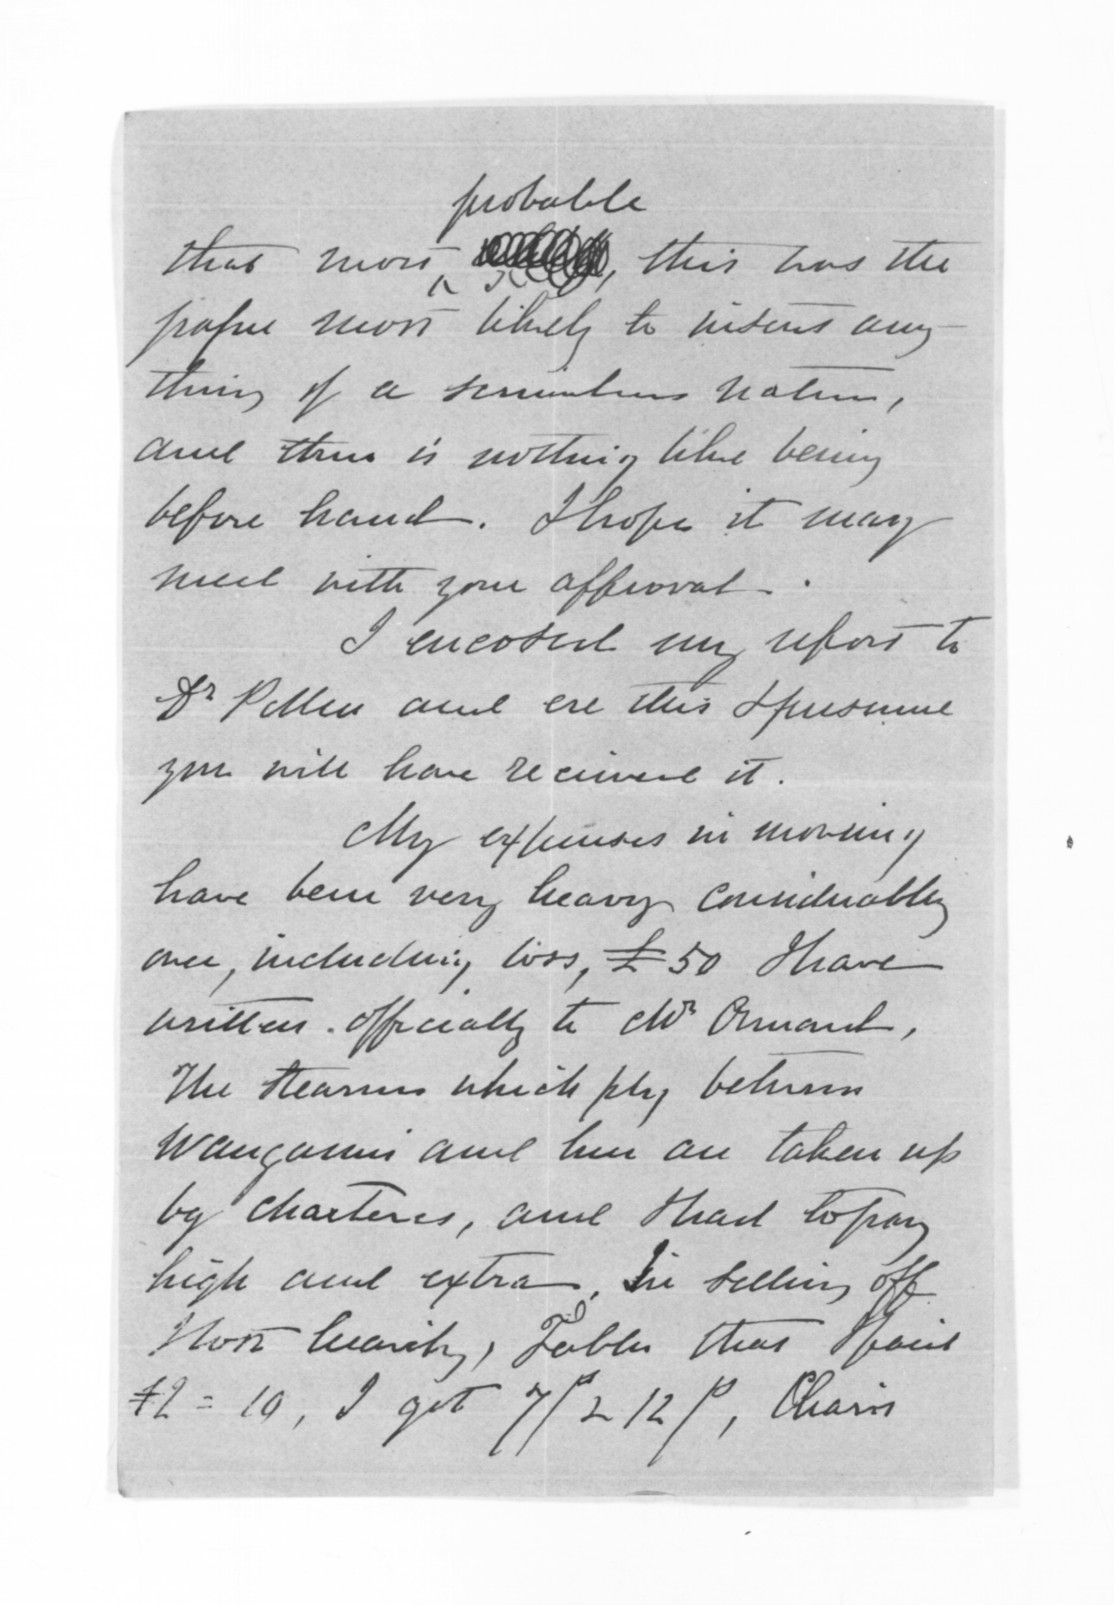 probable
that most , this was the
paper most likely to insert any
thing of a scurrilous nature,
and there is nothing like being
before hand. I hope it may
meet with your approval.
I encosed my report to
Dr Pollen and ere this I presume
you will have received it.
My expenses in moving
have been very heavy considerably
over, including loss, £50 I have
written officially to Mr Ormond,
The steamers which ply between
Wanganui and here are taken up
by charterers, and I had to pay
high and extra. In selling off
I lost heavily, Tables that I paid
£2=10, I got 7/ 12/, Chairs